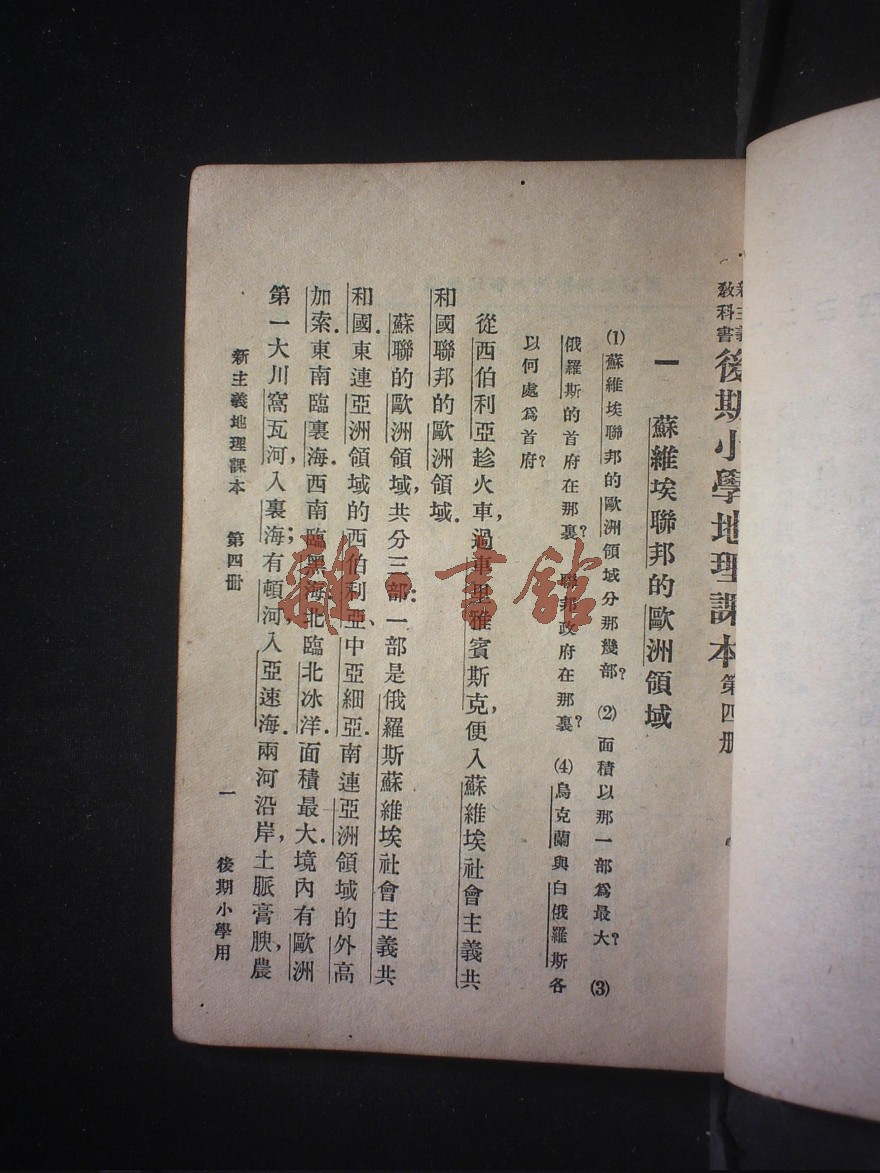 新主義教科書 後期小學地理課本 第四册
一　蘇維埃聯邦的歐洲領域
(1)蘇維埃聯邦的歐洲領域分那幾部?　(2)面積以那一部爲最大?　(3)
俄羅斯的首府在那裏?　聯邦政府在那裏?　(4)烏克蘭與白俄羅斯各
以何處爲首府?
從西伯利亞趁火車,過車里雅賓斯克,便入蘇維埃社會主義共
和國聯邦的歐洲領域.
蘇聯的歐洲領域,共分三部:一部是俄羅斯蘇維埃社會主義共
和國.東連亞洲領域的西伯利亞、中亞細亞.南連亞洲領域的外高
加索.東南臨裏海.西南臨黑海.北臨北冰洋.面積最大.境內有歐洲
第一大川窩瓦河,入裏海;有頓河,入亞速海.兩河沿岸,土脈膏腴,農
新主義地理課本　第四册　一　後期小學用
雜·書館